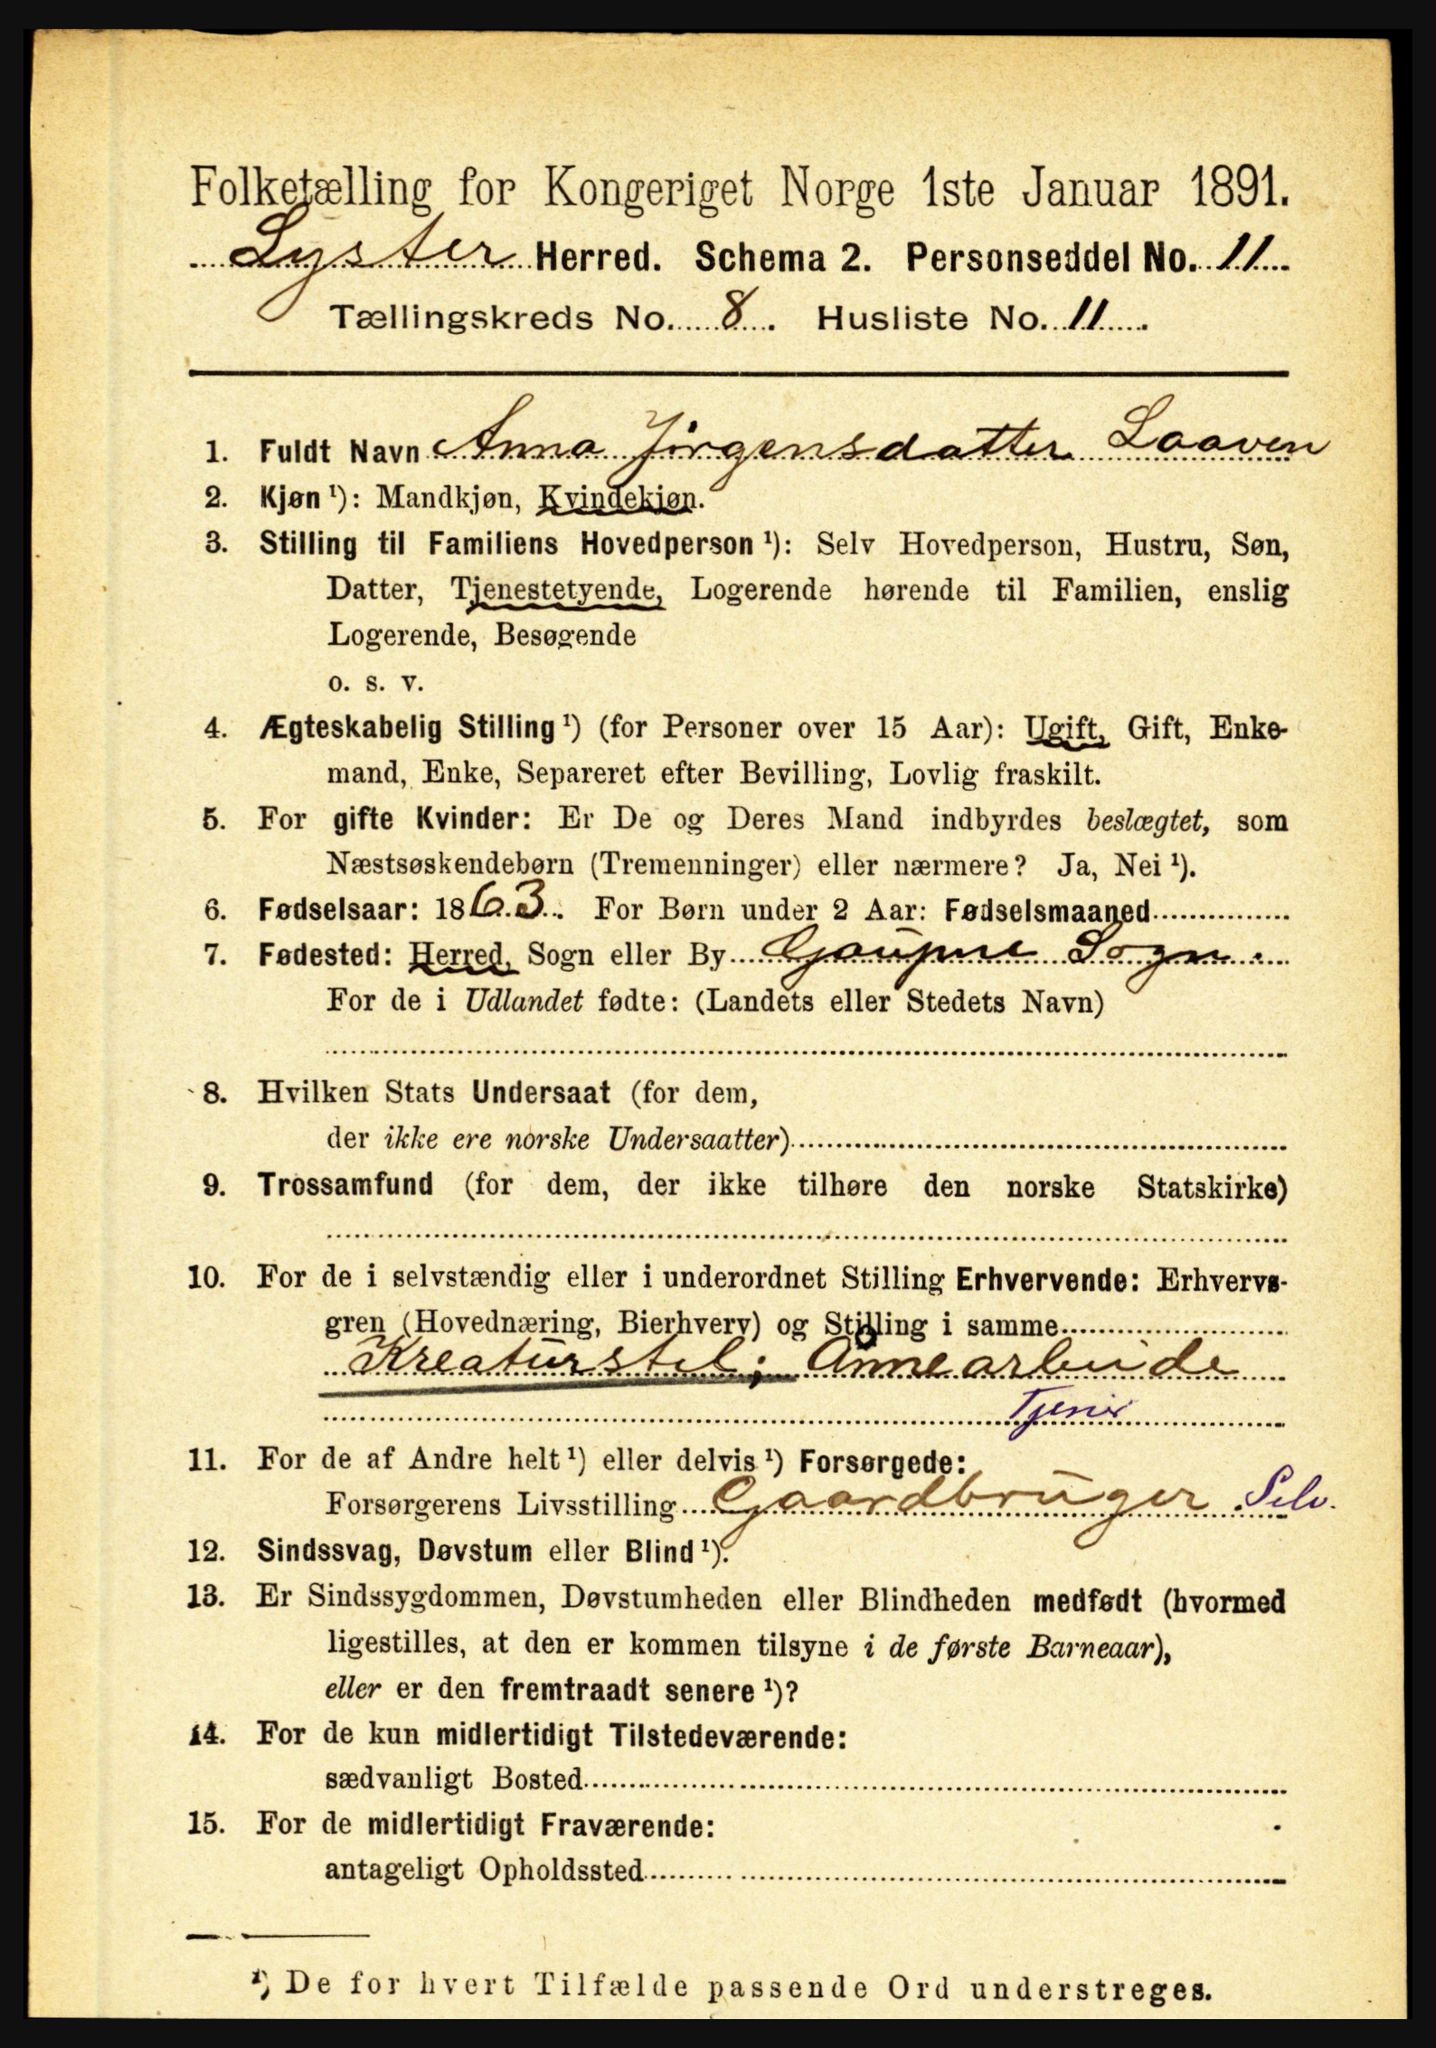 Folketælling for Kongeriget Norge 1ste Januar 1891.
Lyster Herred. Schema 2. Personseddel No. 11
Tællingskreds No. 8. Husliste No. 11.
1. Fuldt Navn Anna Jörgensdatter Laaven
2. Kjøn ¹): Mandkjøn, Kvindekjøn.
3. Stilling til Familiens Hovedperson ¹): Selv Hovedperson, Hustru, Søn,
Datter, Tjenestetyende, Logerende hørende til Familien, enslig
Logerende, Besøgende
o. s. v.
4. Ægteskabelig Stilling ¹) (for Personer over 15 Aar): Ugift, Gift, Enke-
mand, Enke, Separeret efter Bevilling, Lovlig fraskilt.
5. For gifte Kvinder: Er De og Deres Mand indbyrdes beslægtet, som
Næstsøskendebørn (Tremenninger) eller nærmere? Ja, Nei ¹).
6. Fødselsaar: 1863. For Børn under 2 Aar: Fødselsmaaned
7. Fødested: Herred, Sogn eller By Gaupne Sogn.
For de i Udlandet fødte: (Landets eller Stedets Navn)
8. Hvilken Stats Undersaat (for dem,
der ikke ere norske Undersaatter)
9. Trossamfund (for dem, der ikke tilhøre den norske Statskirke)
10. For de i selvstændig eller i underordnet Stilling Erhvervende: Erhvervs-
gren (Hovednæring, Bierhverv) og Stilling i samme
Kreaturstel; Onnearbeide
Tjener
11. For de af Andre helt ¹) eller delvis ¹) Forsørgede:
Forsørgerens Livsstilling Gaardbruger Selv.
12. Sindssvag, Døvstum eller Blind ¹).
13. Er Sindssygdommen, Døvstumheden eller Blindheden medfødt (hvormed
ligestilles, at den er kommen tilsyne i de første Barneaar),
eller er den fremtraadt senere ¹)?
14. For de kun midlertidigt Tilstedeværende:
sædvanligt Bosted
15. For de midlertidigt Fraværende:
antageligt Opholdssted
¹) De for hvert Tilfælde passende Ord understreges.